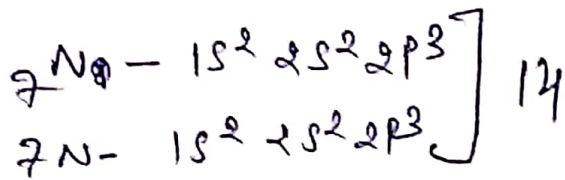 ₇N - 1s² 2s² 2p³ ] 14
7N- 1s² 2s² 2p³